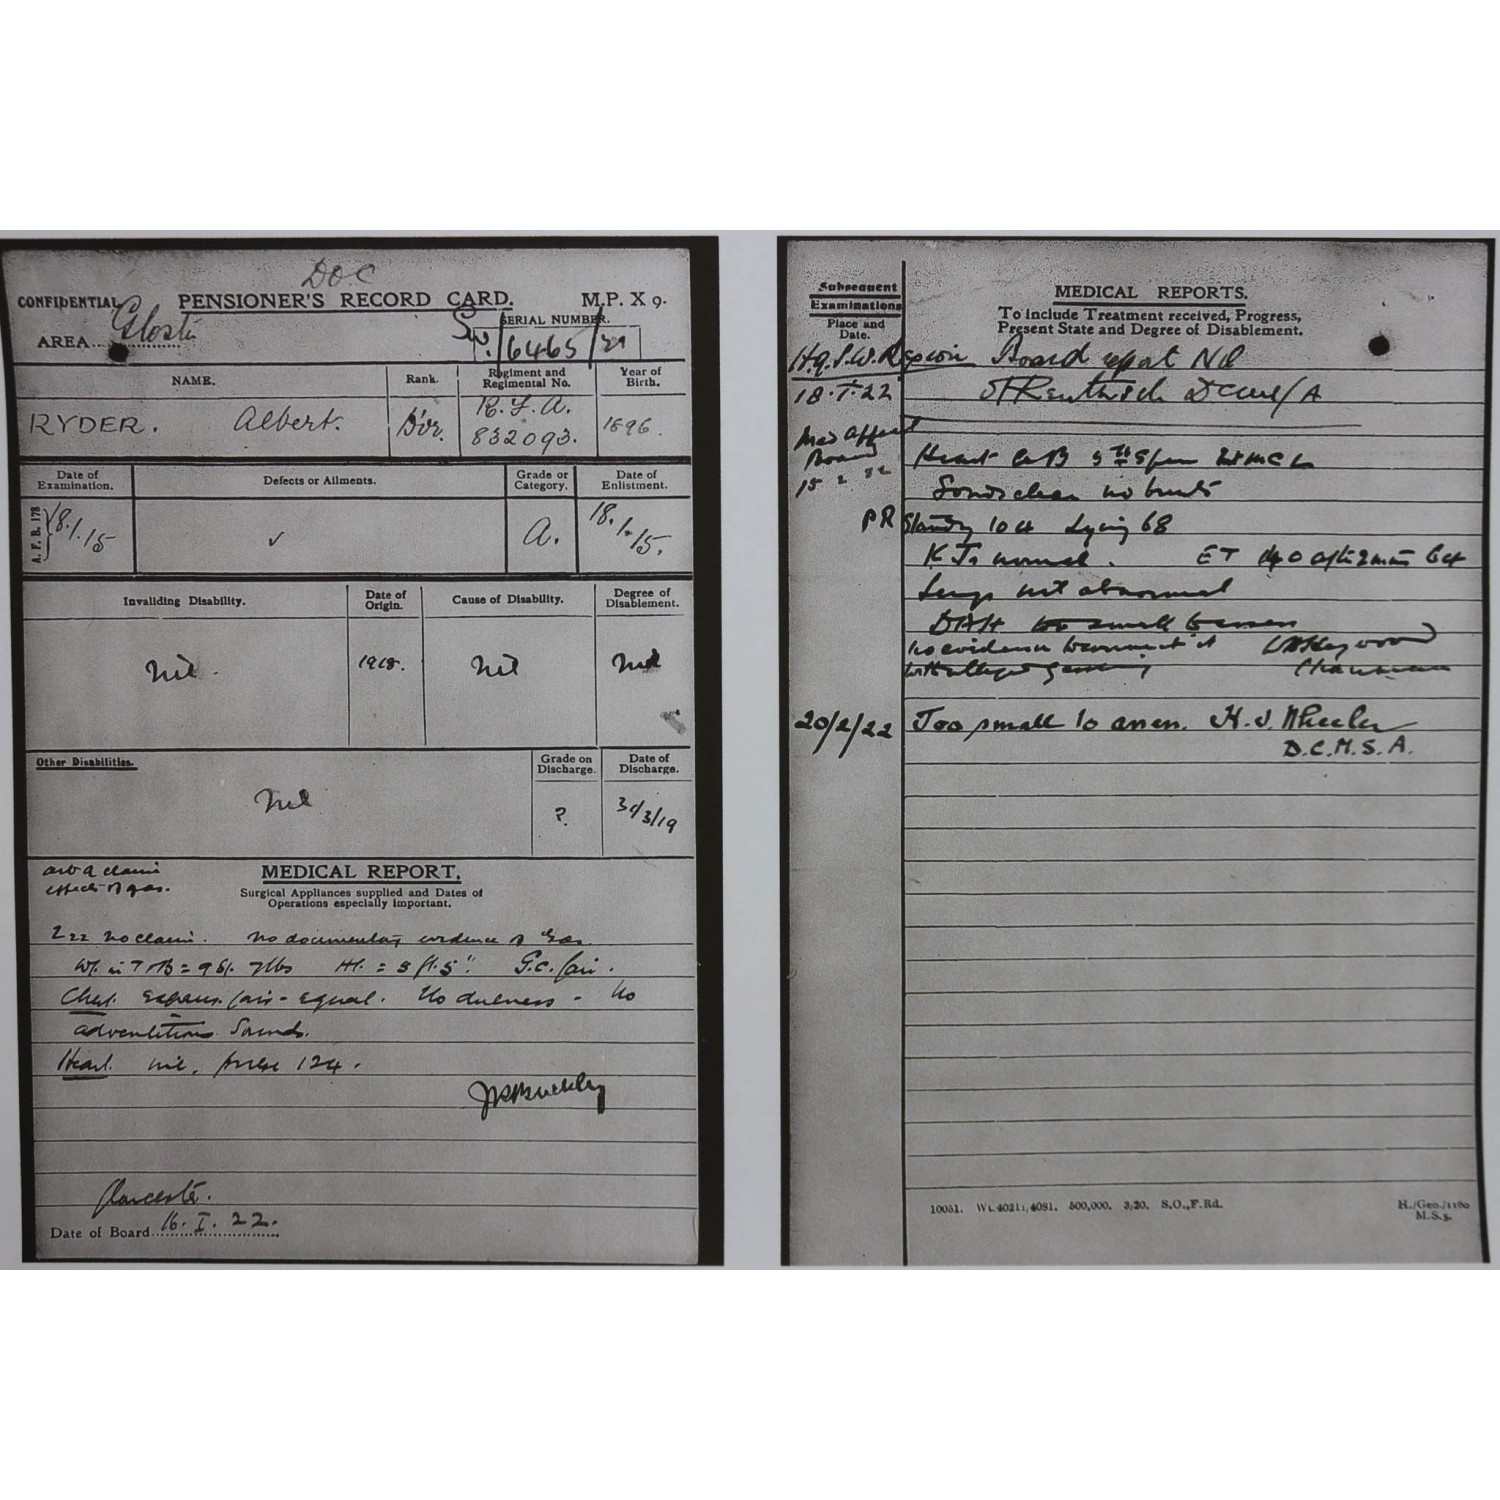 DOC
CONFIDENTIAL PENSIONER'S RECORD CARD. M.P. X 9.
AREA Gloster SERIAL NUMBER.
Sw./6465/21
NAME. Rank. Regiment and Regimental No. Year of Birth.
RYDER. Albert. Dvr. R.F.A. 832093. 1896.
Date of Examination. Defects or Ailments. Grade or Category. Date of Enlistment.
A.F.B. 178 18.1.15 ✓ A. 18.1.15.
Invaliding Disability. Date of Origin. Cause of Disability. Degree of Disablement.
Nil. 1918. Nil Nil
Other Disabilities. Grade on Discharge. Date of Discharge.
Nil ? /3/19
claim
effects of gas.
MEDICAL REPORT.
Surgical Appliances supplied and Dates of
Operations especially important.
No claim. No documentary evidence of Gas.
Wt. in = 9 st. 7 lbs Ht. = 5 ft. 5". G.C. fair.
Chest. Expans. fair - equal. No dulness - No
adventitious Sounds.
Heart. nil. Pulse 124.
Buckley
Gloucester.
Date of Board 16.I.22.
Subsequent Examinations
Place and Date.
MEDICAL REPORTS.
To include Treatment received, Progress,
Present State and Degree of Disablement.
Hq. S.W. Region Board report Nil
18.I.22
Med Appeal
Board
15 2 22
Heart AB 5th Space MCL
Sounds clear no bruits
PR Standing 104 Lying 68
KJs normal. ET 140 after 2 mins 64
Lungs not abnormal
DAH too small to assess
no evidence to connect it Heywood
with alleged gassing Chairman
20/2/22 Too small to assess. H. J. Wheeler
D.C.M.S.A.
10051. 4081. 500,000. 3/20. S.O.,F.Rd.
H./Gen./1160
M.S.5.